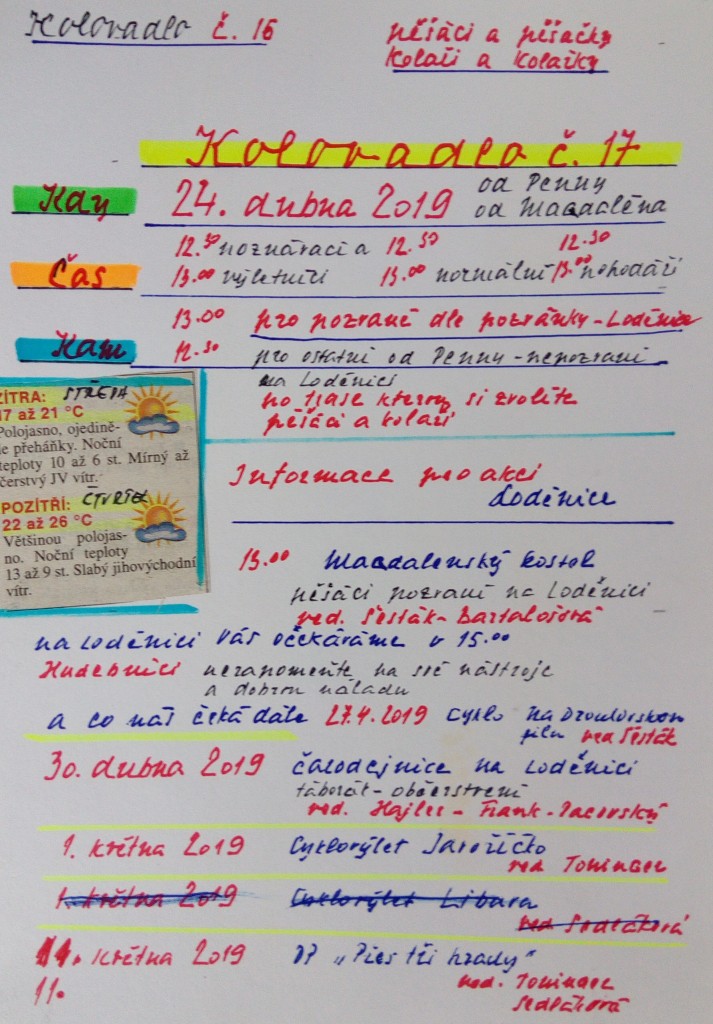 Kolovadlo č. 16
pěšáci a pěšačky
kolaři a kolařky
Kolovadlo č. 17
Kdy 24. dubna 2019 od Penny
od Magdaléna
12.30 poznávací a 12.30 12.30
Čas 13.00 výletníci 13.00 normální 13.00 pohodáři
13.00 pro pozvané dle pozvánky - Loděnice
Kam 12.30 pro ostatní od Penny - nepozvaní
na Loděnici
po trase kterou si zvolíte
pěšáci a kolaři
ZÍTRA: STŘEDA
17 až 21 °C
Polojasno, ojedině-
le přeháňky. Noční
teploty 10 až 6 st. Mírný až
čerstvý JV vítr.
POZÍTŘÍ: ČTVRTEK
22 až 26 °C
Většinou polojas-
no. Noční teploty
13 až 9 st. Slabý jihovýchodní
vítr.
Informace pro akci
Loděnice
13.00 Magdalenský kostel
pěšáci pozvaní na Loděnici
ved. Šesták - Bartalošová
na Loděnici Vás očekáváme v 15.00
Hudebníci nezapomeňte na své nástroje
a dobrou náladu
a co nás čeká dále 27.4.2019 cyklo na
pilu ved Šesták
30. dubna 2019 čarodejnice na Loděnici
táborák - občerstvení
ved. Hajler - Frank - Pacovský
1. května 2019 Cyklovýlet Javoříčko
ved Tominger
1. května 2019 Cyklovýlet Libava
ved Sedláčková
11. května 2019 DP „Přes tři hrady"
11. ved. Tominger
Sedláčková